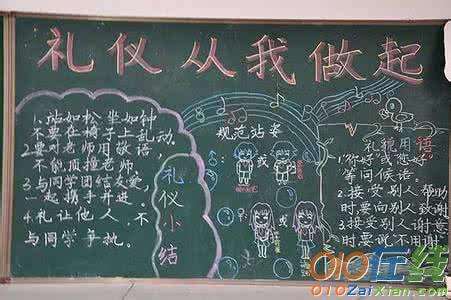 礼仪从我做起
1、站如松坐如钟
不要在椅子上乱动。
2、要对老师用敬语,
不能顶撞老师。
3、与同学团结友爱,
一起携手并进。
4、礼让他人,不
与同学争执。
礼仪小结
规范站姿
或
或
礼貌用语
1、"你好"或"您好"
等问候语。
2、接受别人帮助
时要向别人致谢
3、接受别人谢意
时要说"不用谢"
010在线
010ZaiXian.com